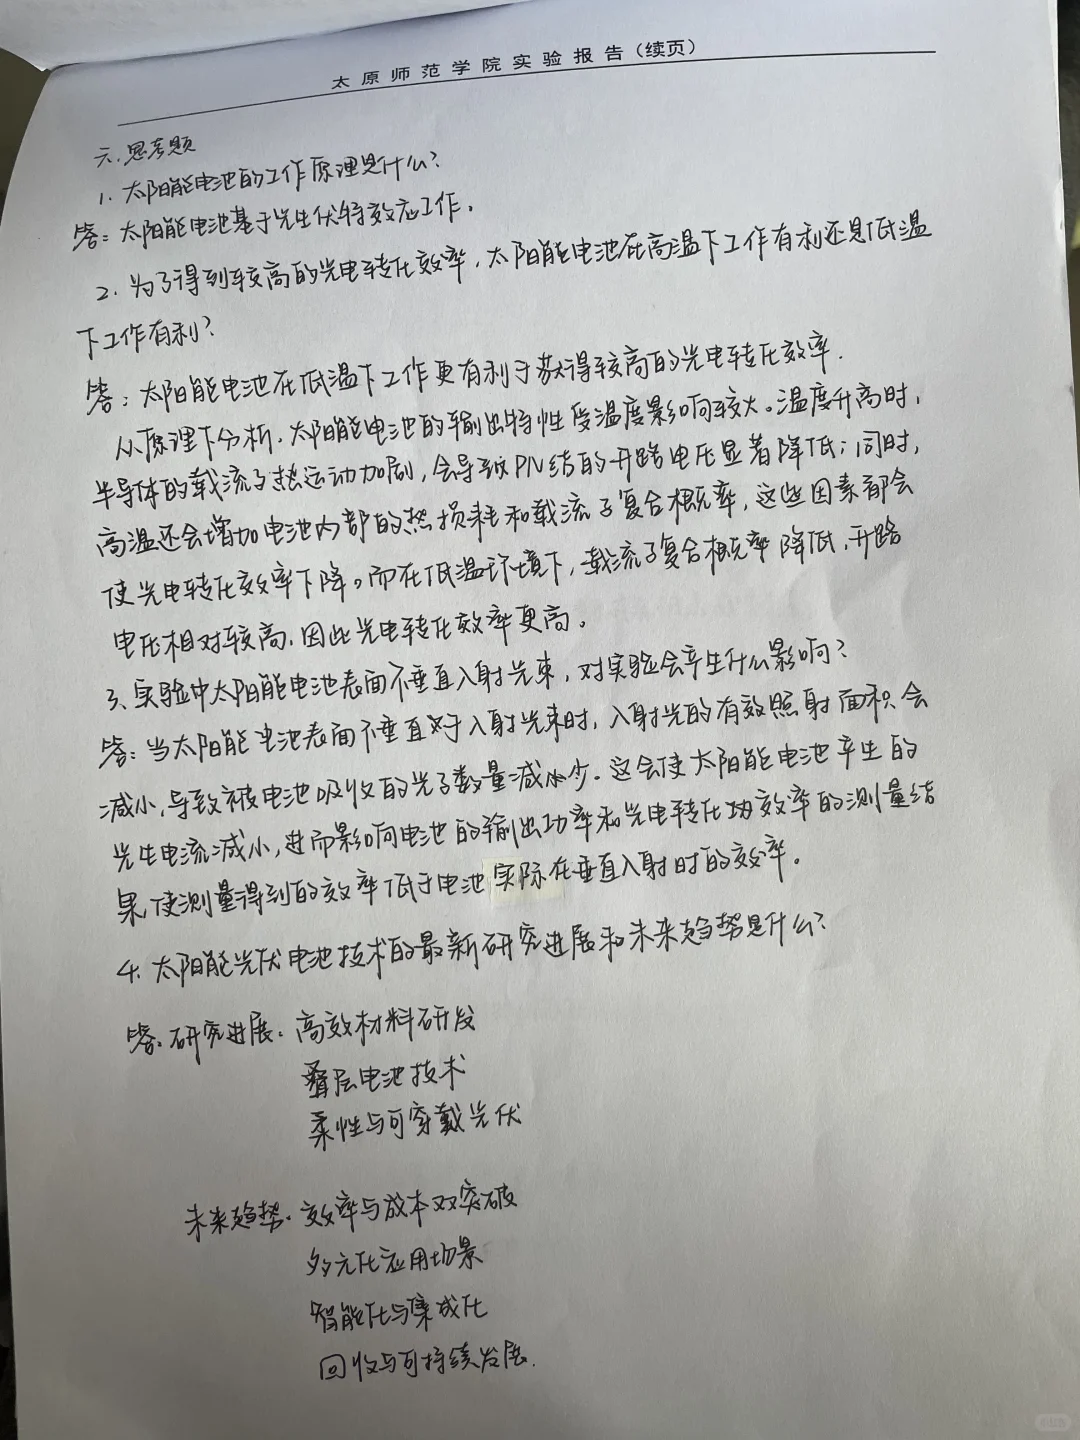 太原师范学院实验报告（续页）
六、思考题
1. 太阳能电池的工作原理是什么？
答：太阳能电池基于光生伏特效应工作。
2. 为了得到较高的光电转化效率，太阳能电池在高温下工作有利还是低温
下工作有利？
答：太阳能电池在低温下工作更有利于获得较高的光电转化效率.
从原理下分析，太阳能电池的输出特性受温度影响较大。温度升高时，
半导体的载流子热运动加剧，会导致PN结的开路电压显著降低；同时，
高温还会增加电池内部的热损耗和载流子复合概率，这些因素都会
使光电转化效率下降。而在低温环境下，载流子复合概率降低，开路
电压相对较高，因此光电转化效率更高。
3、实验中太阳能电池表面不垂直入射光束，对实验会产生什么影响？
答：当太阳能电池表面不垂直于入射光束时，入射光的有效照射面积会
减小，导致被电池吸收的光子数量减少。这会使太阳能电池产生的
光生电流减小，进而影响电池的输出功率和光电转化效率的测量结
果，使测量得到的效率低于电池实际在垂直入射时的效率。
4. 太阳能光伏电池技术的最新研究进展和未来趋势是什么？
答：研究进展：高效材料研发
叠层电池技术
柔性与可穿戴光伏
未来趋势：效率与成本双突破
多元化应用场景
智能化与集成化
回收与可持续发展.